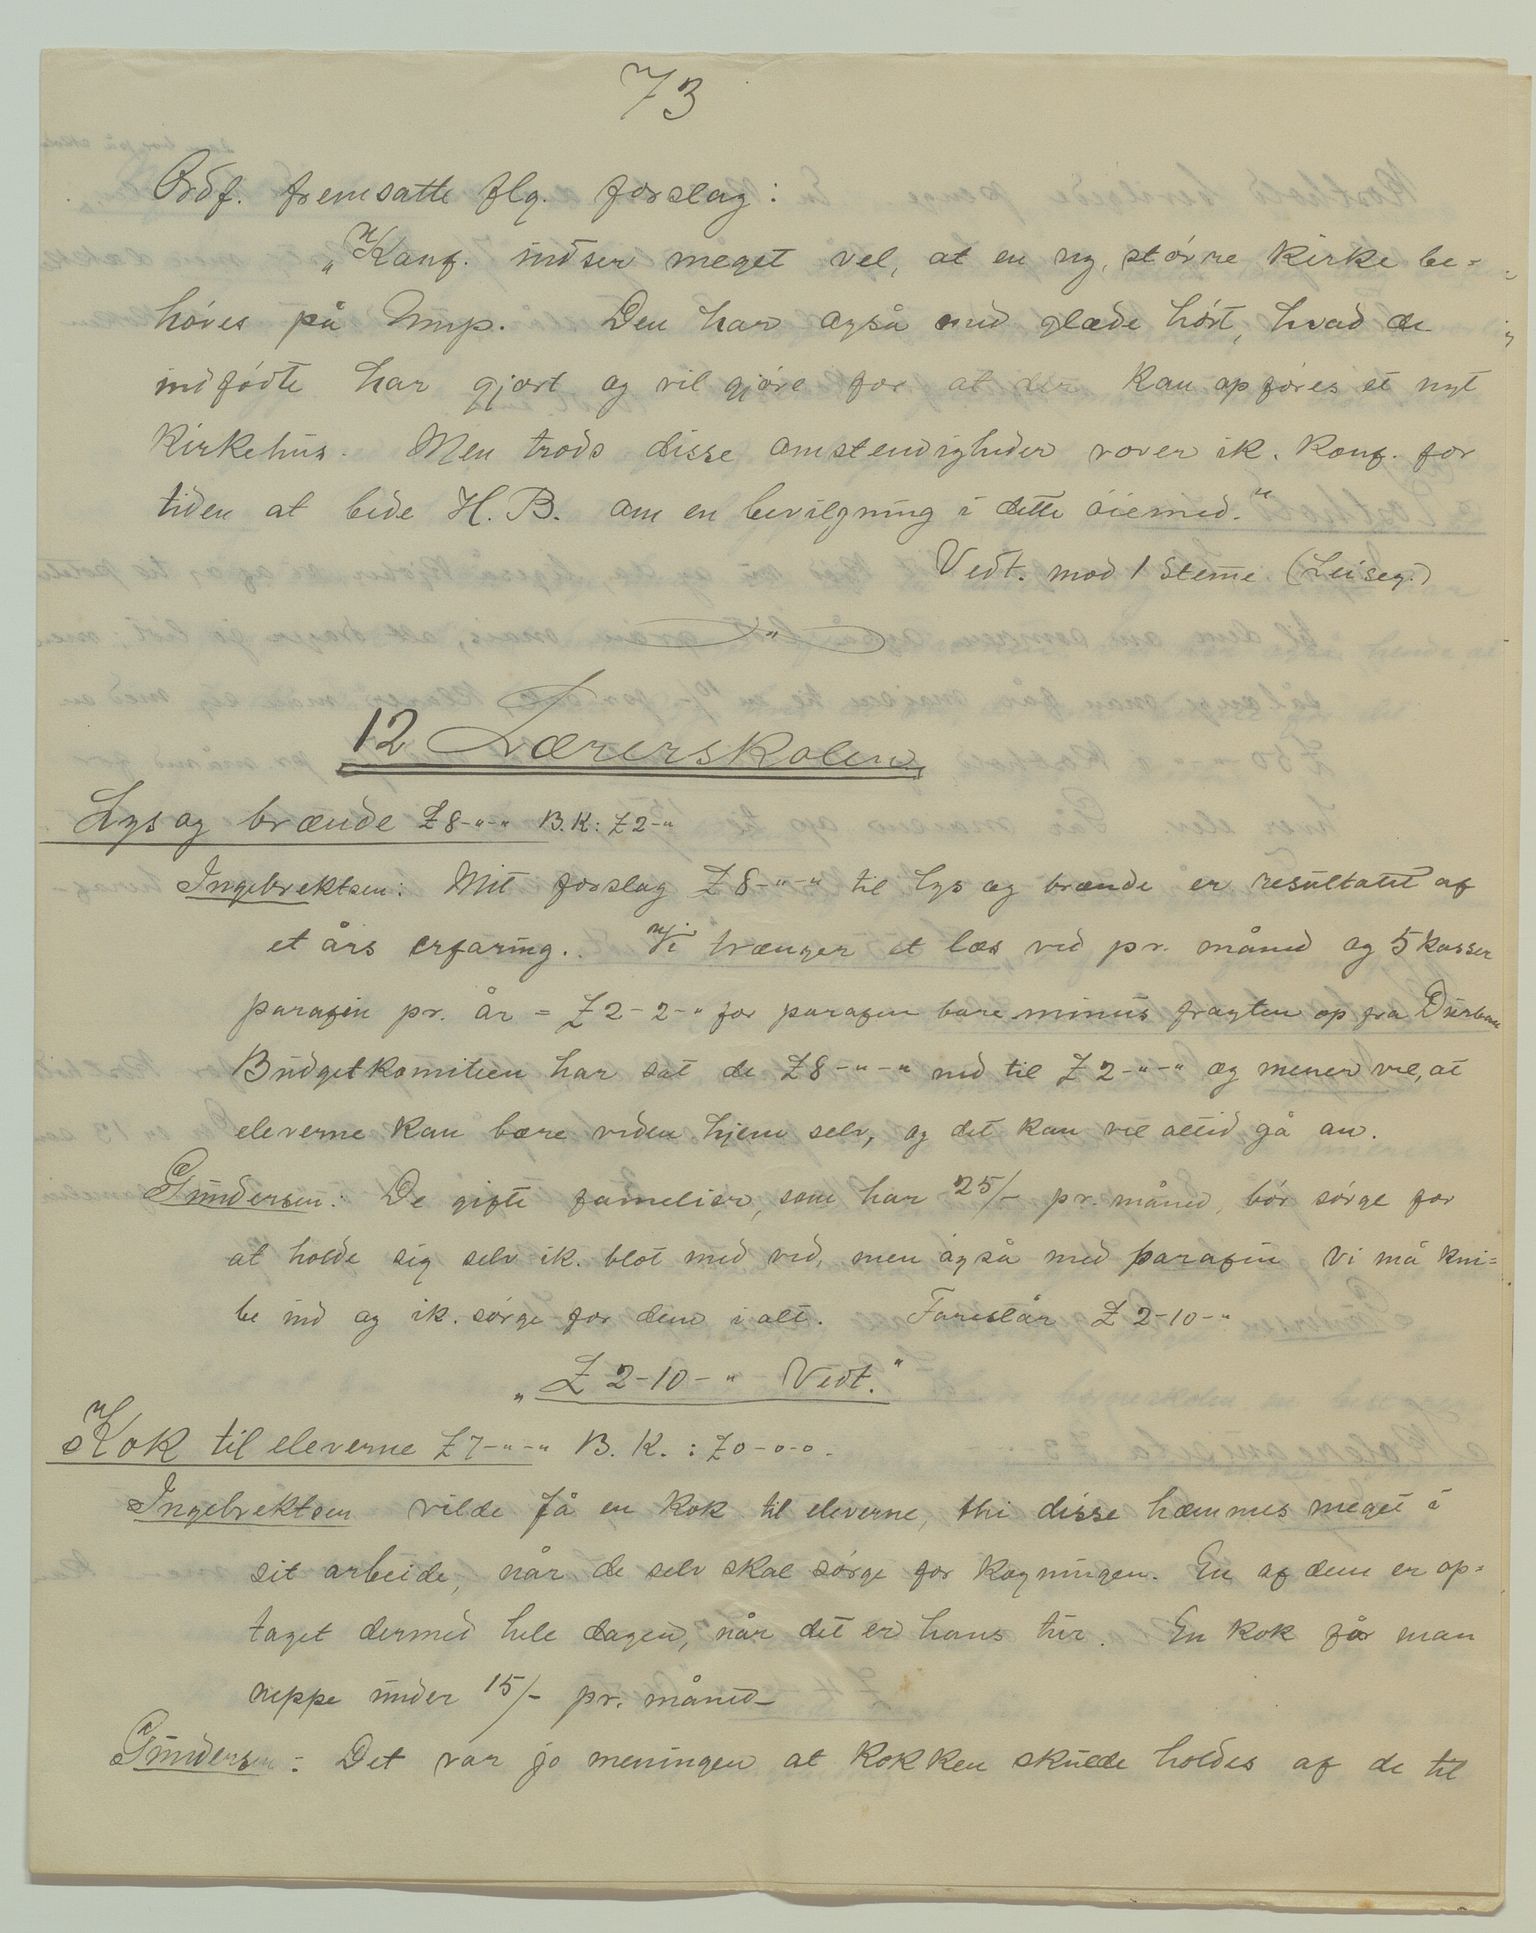 73
Ordf. fremsatte flg. forslag:
„Konf. indser meget vel, at en ny, större kirke be=
höves på Ump. Den har også med glæde hört, hvad de
indfödte har gjort og vil gjöre for at der kan opföres et nyt
kirkehus. Men trods disse omstendigheder vover ik. konf. for
tiden at bede H. B. om en bevilgning i dette öiemed."
Vedt. mod 1 stemme (Leiseg.)
12 Lærerskolen
Lys og brænde £8-"-" B.K: £2-"
Ingebrektsen: Mit forslag £8-"-" til lys og brænde er resultatet af
et års erfaring. Vi trænger et læs ved pr. måned og 5 kasser
parafin pr. år = £2-2-" for parafin bare minus fragten op fra Durban
Budgetkomiteen har sat de £8-"-" ned til £2-"-" og mener vel, at
eleverne kan bære veden hjem selv, og det kan vel altid gå an.
Gundersen: De gifte familier, som har 25/- pr. måned, bör sörge for
at holde sig selv ik. blot med ved, men også med parafin Vi må kni=
be ind og ik. sörge for dem i alt. Foreslår £2-10-"
„£2-10-" Vedt."
Kok til eleverne £7-"-" B. K.: £0-0-0-
Ingebrektsen vilde få en kok til eleverne, thi disse hæmmes meget i
sit arbeide, når de selv skal sörge for kogningen. En af dem er op=
taget dermed hele dagen, når det er hans tur. En kok får man
neppe under 15/- pr. måned-
Gundersen: Det var jo meningen at kokken skulde holdes af de til